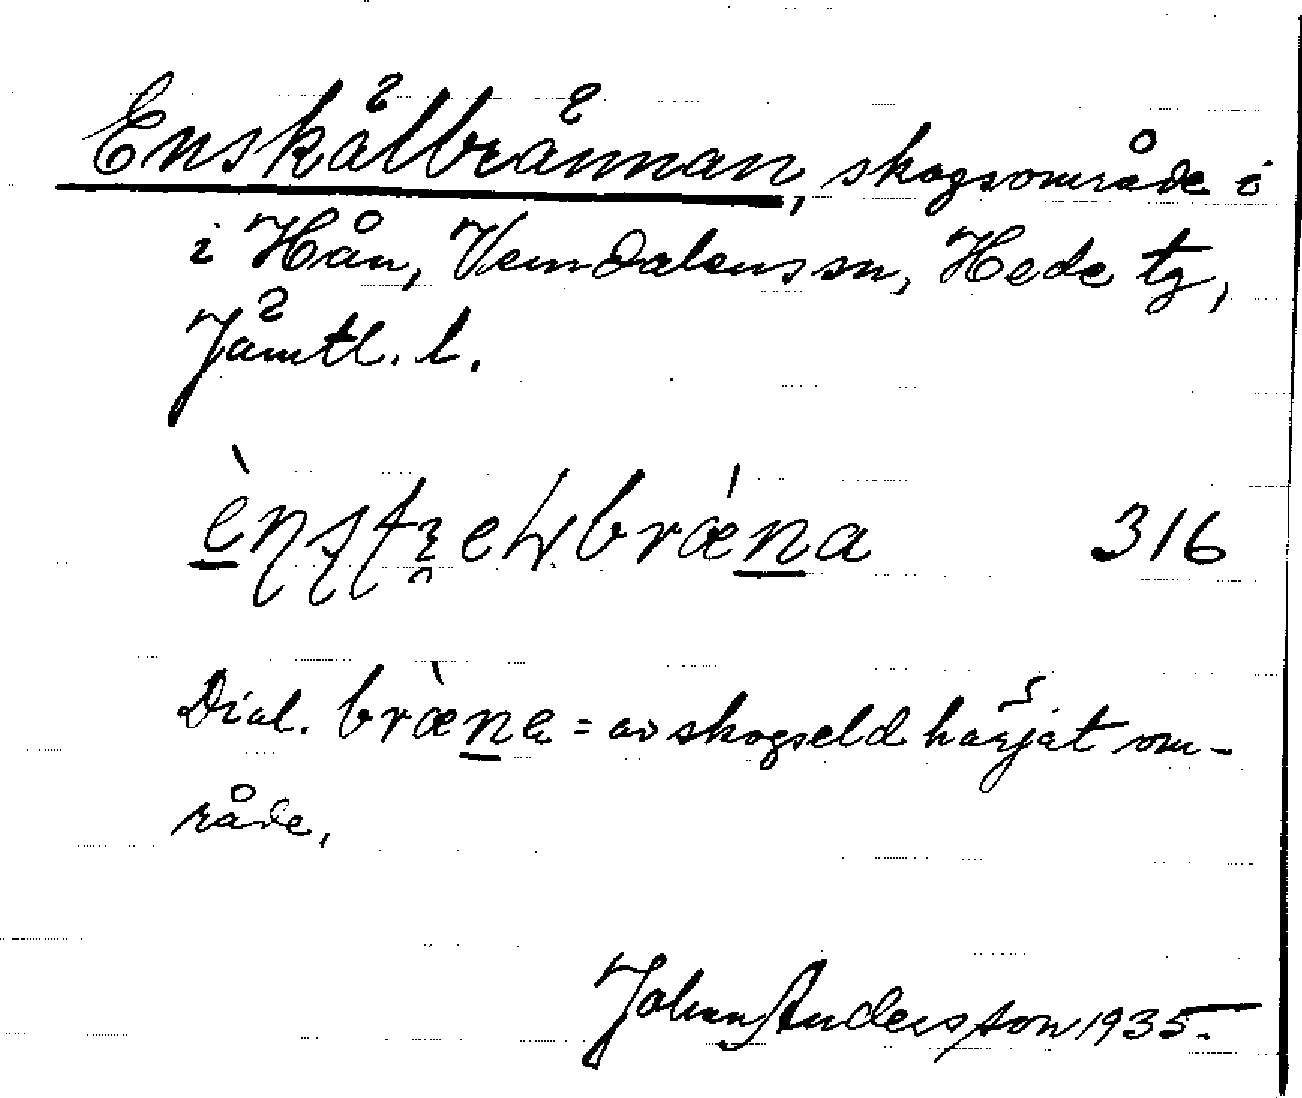 Enskälbrännan, skogsområde i
i Hån, Vemdalens sn, Hede tg,
Jämtl. l.
316
Dial. bræna = av skogseld härjat om-
råde.
Johan Andersson 1935.